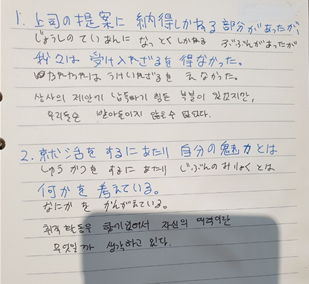 1. 上司の提案に納得しかねる部分があったが、
じょうしのていあんに なっとくしかねる ぶぶんがあったが
我々は受け入れざるを得なかった。
われわれは うけいれざるを えなかった。
상사의 제안에 납득하기 힘든 부분이 있었지만,
우리들은 받아들이지 않을 수 없었다.
2. 就活をするにあたり 自分の魅力とは
しゅうかつを するにあたり じぶんの みりょく とは
何かを考えている。
なにかを かんがえている。
취직 활동을 함에 있어서 자신의 매력이란
무엇일까 생각하고 있다.